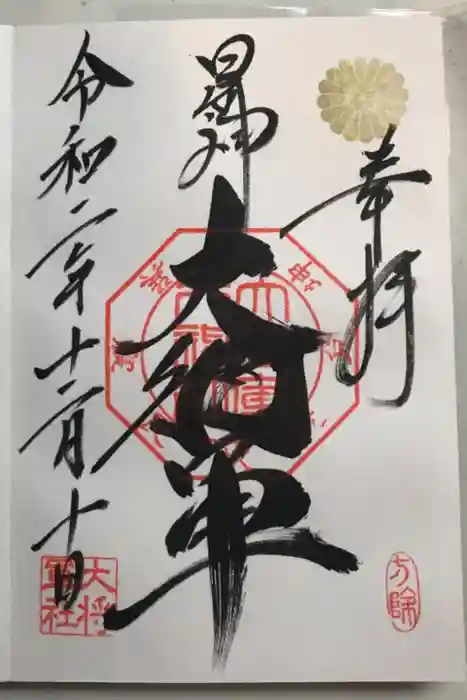 奉拝
星神
大将軍
令和二年十二月十日
大将軍社
方除